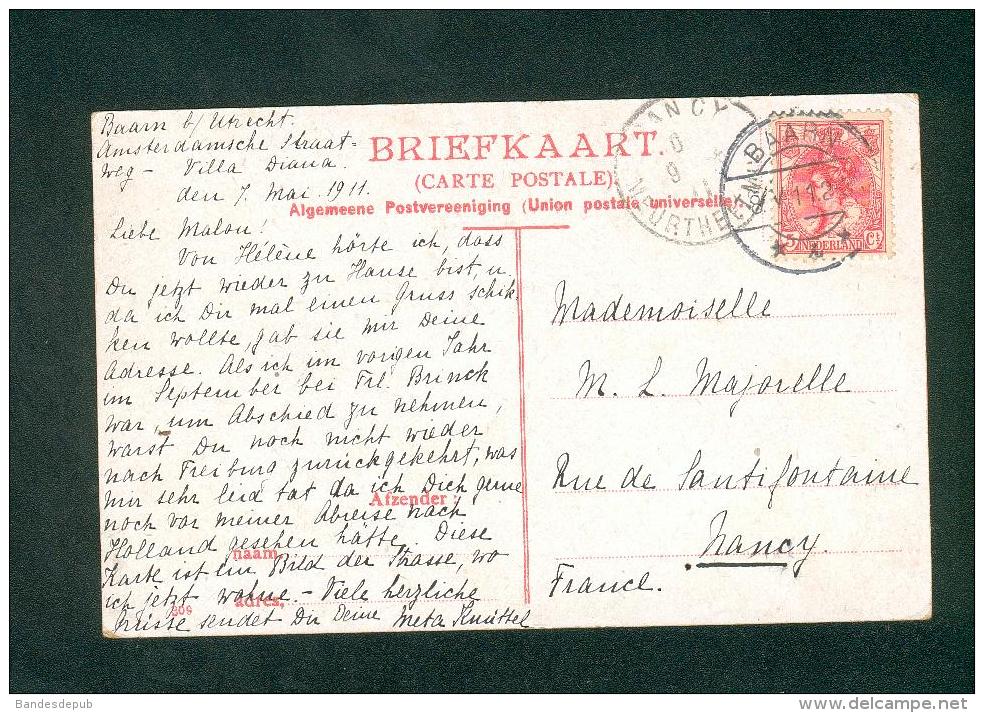 Baarn b/ Utrecht.
Amsterdamsche Straat=
weg – Villa Diana.
den 7. Mai. 1911.
BRIEFKAART.
(CARTE POSTALE).
Algemeene Postvereeniging (Union postale universelle)
NANCY
MEURTHE
BAARN
5 NEDERLAND Ct
Liebe Malou!
Von Hélène hörte ich, dass
Du jetzt wieder zu Hause bist, u.
da ich Dir mal einen Gruss schik-
ken wollte, gab sie mir Deine
Adresse. Als ich im vorigen Jahr
im September bei Frl. Brinck
war, um Abschied zu nehmen,
warst Du noch nicht wieder
nach Freiburg zurückgekehrt, was
mir sehr leid tat da ich Dich gerne
noch vor meiner Abreise nach
Holland gesehen hätte. Diese
Karte ist ein Bild der Strasse, wo
ich jetzt wohne. – Viele herzliche
Grüsse sendet Dir Deine Meta Knüttel
Afzender:
naam
adres,
Mademoiselle
M. L. Majorelle
Rue de Santifontaine
Nancy.
France.
Bandesdepub
www.delcampe.net